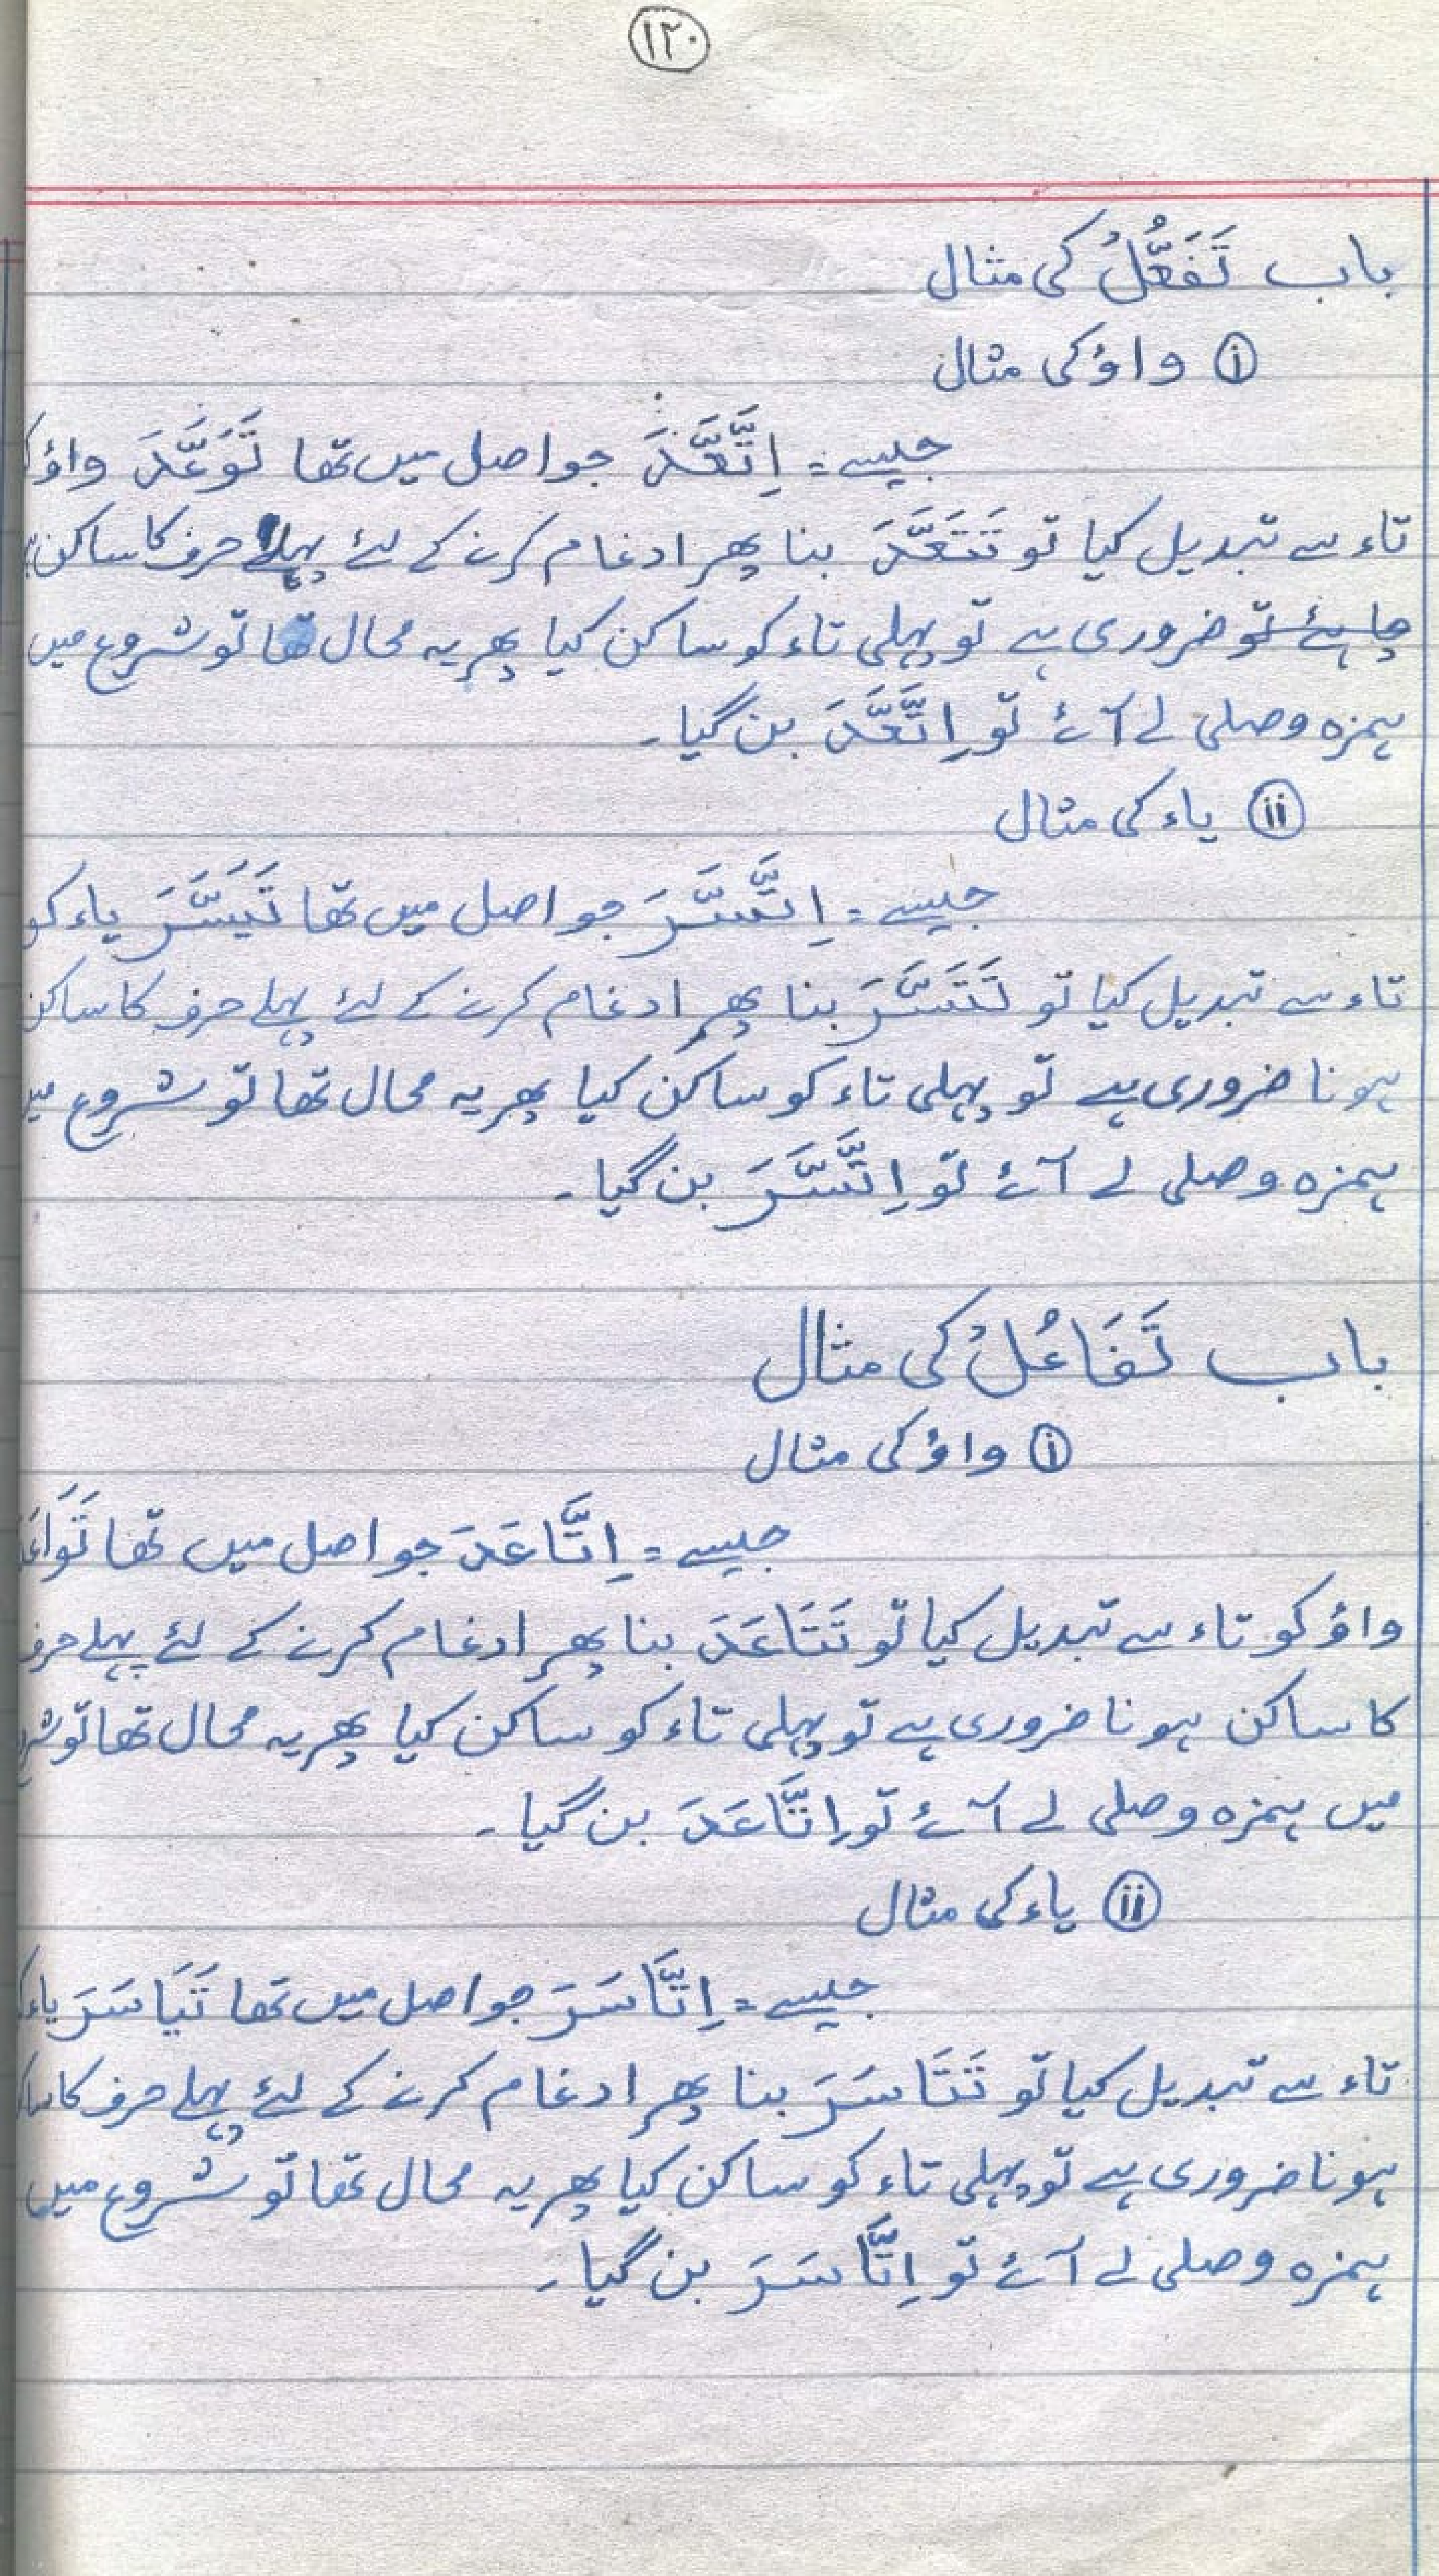 ۱۲۰
باب تَفَعُّلُ کی مثال
ⓘ واؤ کی مثال
جیسے = اِتَّعَّدَ جو اصل میں تھا تَوَعَّدَ واؤ
تاء سے تبدیل کیا تو تَتَعَّدَ بنا پھر ادغام کرنے کے لئے پہلے حرف کا ساکن
چاہئے تو ضروری ہے تو پہلی تاء کو ساکن کیا پھر یہ محال تھا تو شروع میں
ہمزہ وصلی لے آئے تو اِتَّعَّدَ بن گیا۔
(ii) یاء کی مثال
جیسے = اِتَّسَّرَ جو اصل میں تھا تَیَسَّرَ یاء کو
تاء سے تبدیل کیا تو تَتَسَّرَ بنا پھر ادغام کرنے کے لئے پہلے حرف کا ساکن
ہونا ضروری ہے تو پہلی تاء کو ساکن کیا پھر یہ محال تھا تو شروع میں
ہمزہ وصلی لے آئے تو اِتَّسَّرَ بن گیا۔
باب تَفَاعُلُ کی مثال
ⓘ واؤ کی مثال
جیسے = اِتَّاعَدَ جو اصل میں تھا
واؤ کو تاء سے تبدیل کیا تو تَتَاعَدَ بنا پھر ادغام کرنے کے لئے پہلے حرف
کا ساکن ہونا ضروری ہے تو پہلی تاء کو ساکن کیا پھر یہ محال تھا تو
میں ہمزہ وصلی لے آئے تو اِتَّاعَدَ بن گیا۔
(ii) یاء کی مثال
جیسے = اِتَّاسَرَ جو اصل میں تھا تَیَاسَرَ یاء
تاء سے تبدیل کیا تو تَتَاسَرَ بنا پھر ادغام کرنے کے لئے پہلے حرف کا
ہونا ضروری ہے تو پہلی تاء کو ساکن کیا پھر یہ محال تھا تو شروع میں
ہمزہ وصلی لے آئے تو اِتَّاسَرَ بن گیا۔